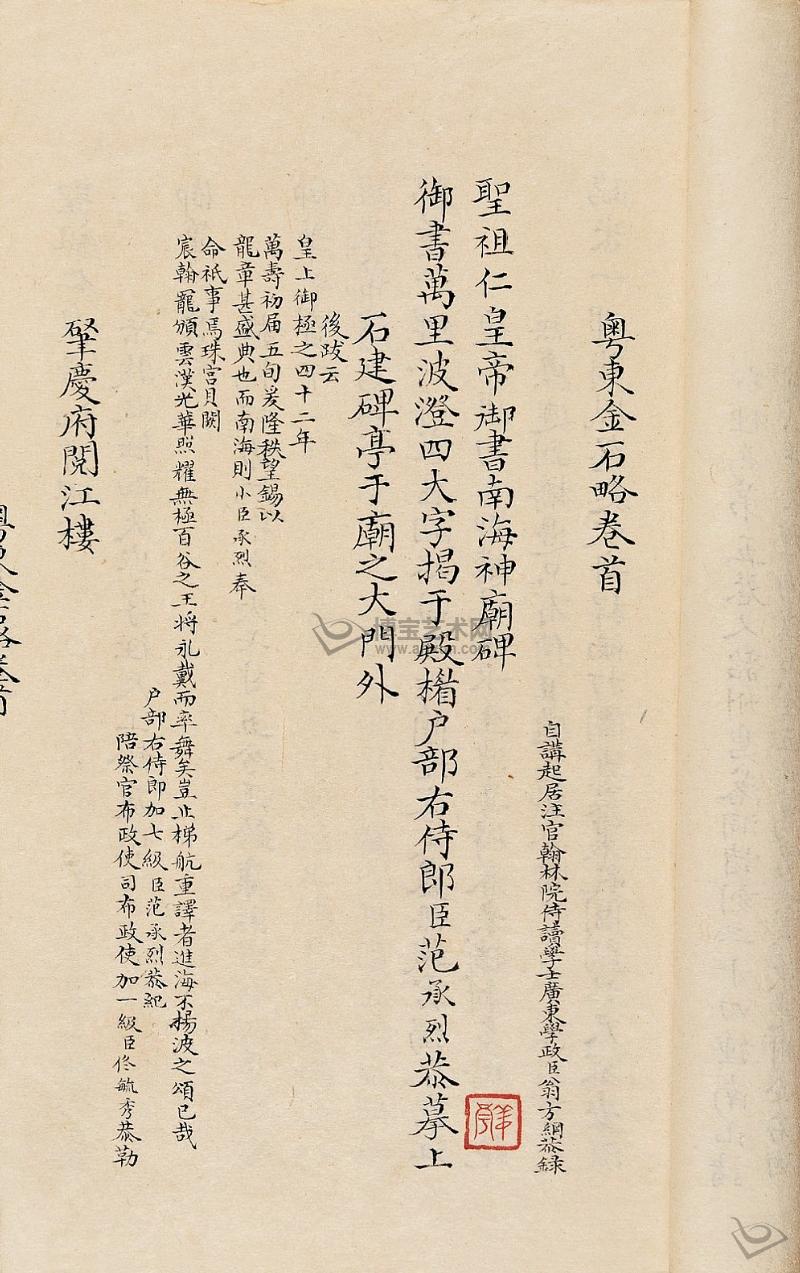 粤東金石略卷首
日講起居注官翰林院侍讀學士廣東學政臣翁方綱恭錄
聖祖仁皇帝御書南海神廟碑
御書萬里波澄四大字揭于殿楣户部右侍郎臣范承烈恭摹上
石建碑亭于廟之大門外
後跋云
皇上御極之四十二年
萬壽初届五旬爰隆秩望錫以
龍章甚盛典也而南海則小臣承烈奉
命祇事焉珠宮貝闕
宸翰寵頒雲漢光華照耀無極百谷之王將永戴而率舞矣豈止梯航重譯者進海不揚波之頌已哉
户部右侍郎加七級臣范承烈恭紀
陪祭官布政使司布政使加一級臣佟毓秀恭勒
肇慶府閱江樓
粤東金石略卷首
博宝艺术网